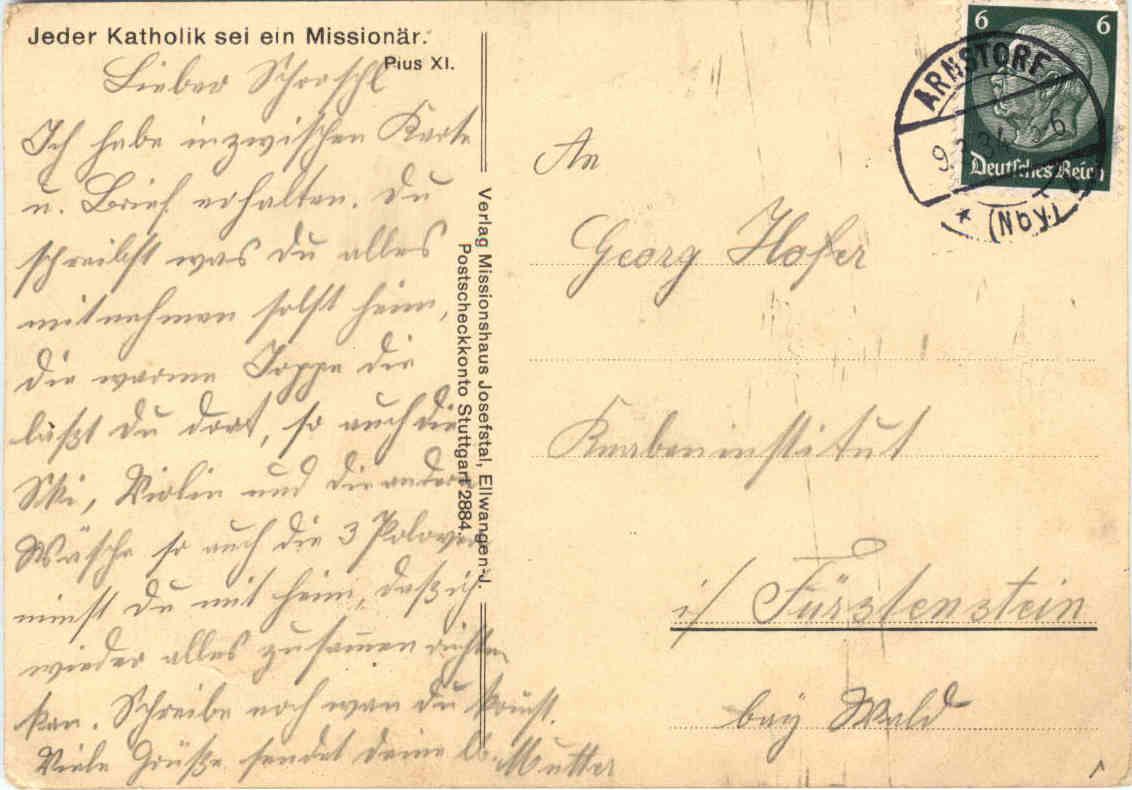 Jeder Katholik sei ein Missionär.
Pius XI.
Lieber Schorschl
Ich habe inzwischen Karte
u. Brief erhalten. Du
schreibst was du alles
mitnehmen sollst heim,
die warme Joppe die
läßt du dort, so auch die
Ski, Violin und die andere
Wäsche so auch die 3 Polover
nimst du mit heim, daß ich
wieder alles zusam̄en richten
kan. Schreibe noch wan du kom̄st.
Viele Grüße sendet deine lb. Mutter
Verlag Missionshaus Josefstal, Ellwangen-J.
Postscheckkonto Stuttgart 2884.
6 6
Deutsches Reich
ARNSTORF
(Nby.)
An
Georg Hofer
Knabeninstitut
i/ Fürstenstein
bay Wald